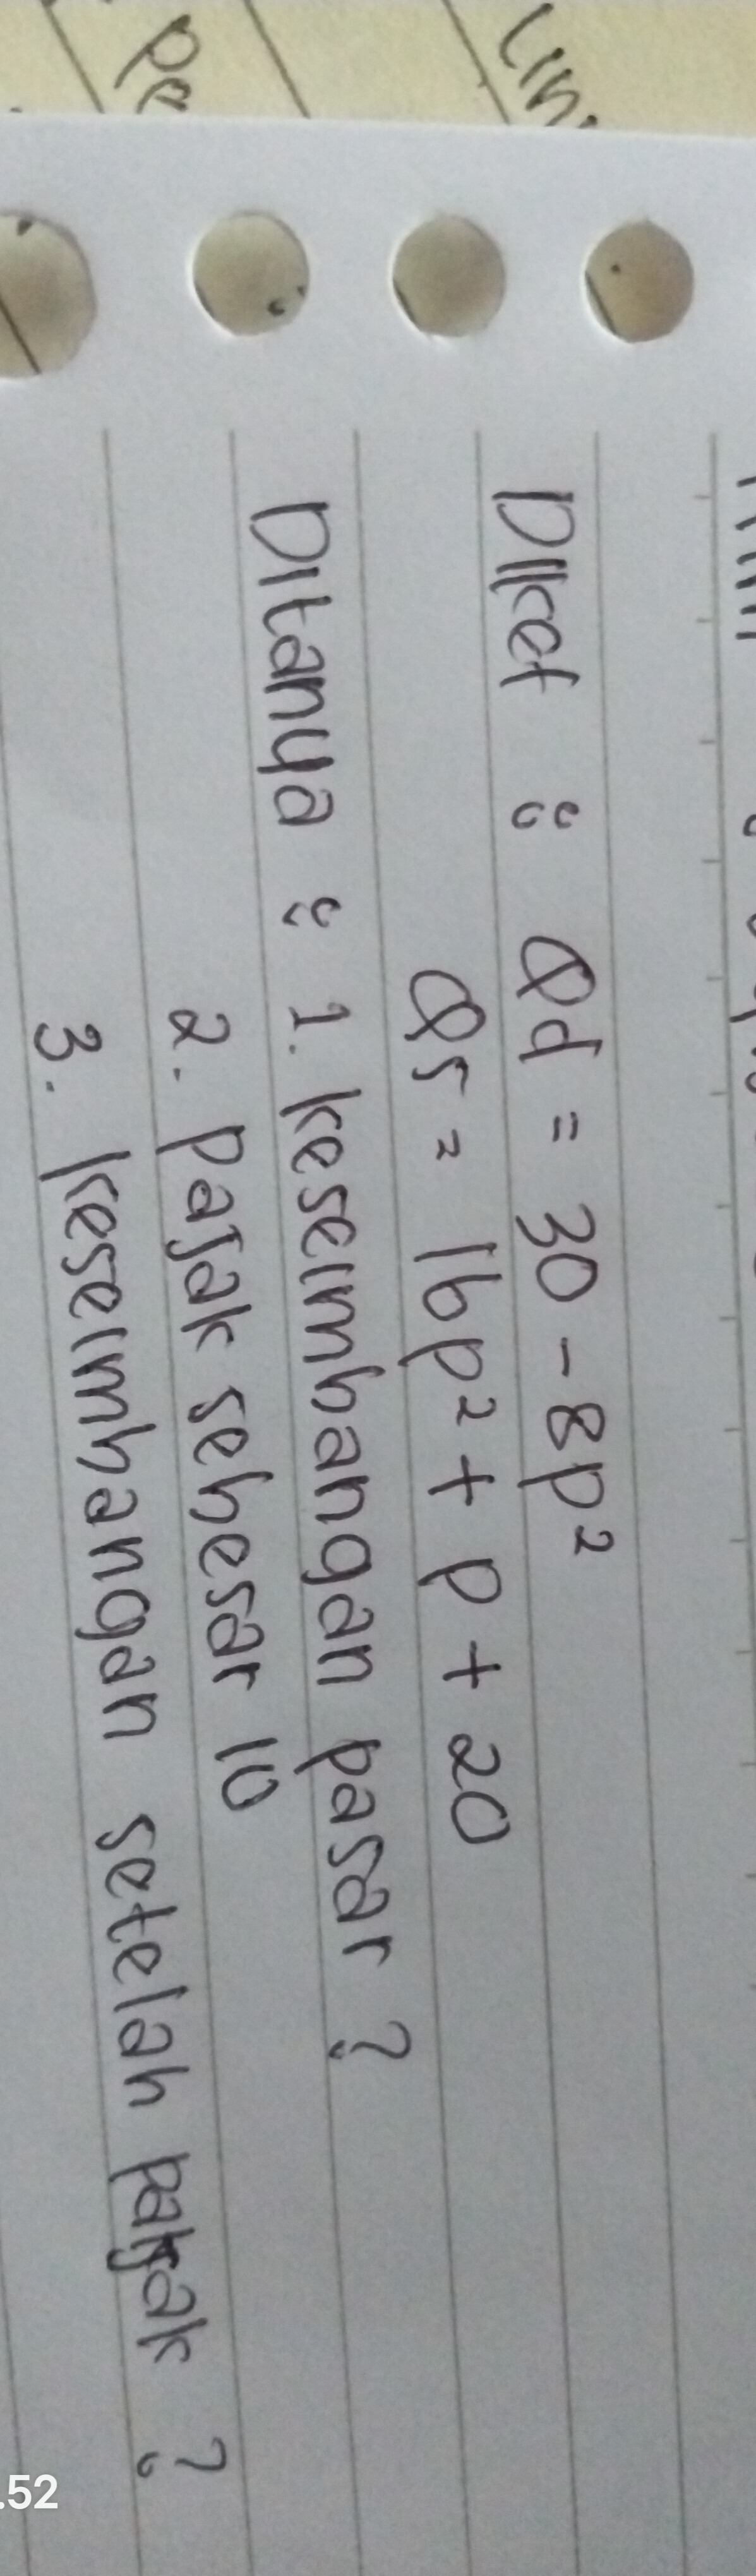 Diket : Qd = 30 - 8p²
Qs = 16p² + p + 20
Ditanya : 1. keseimbangan pasar ?
2. Pajak sebesar 10
3. keseimbangan setelah pajak ?
.52